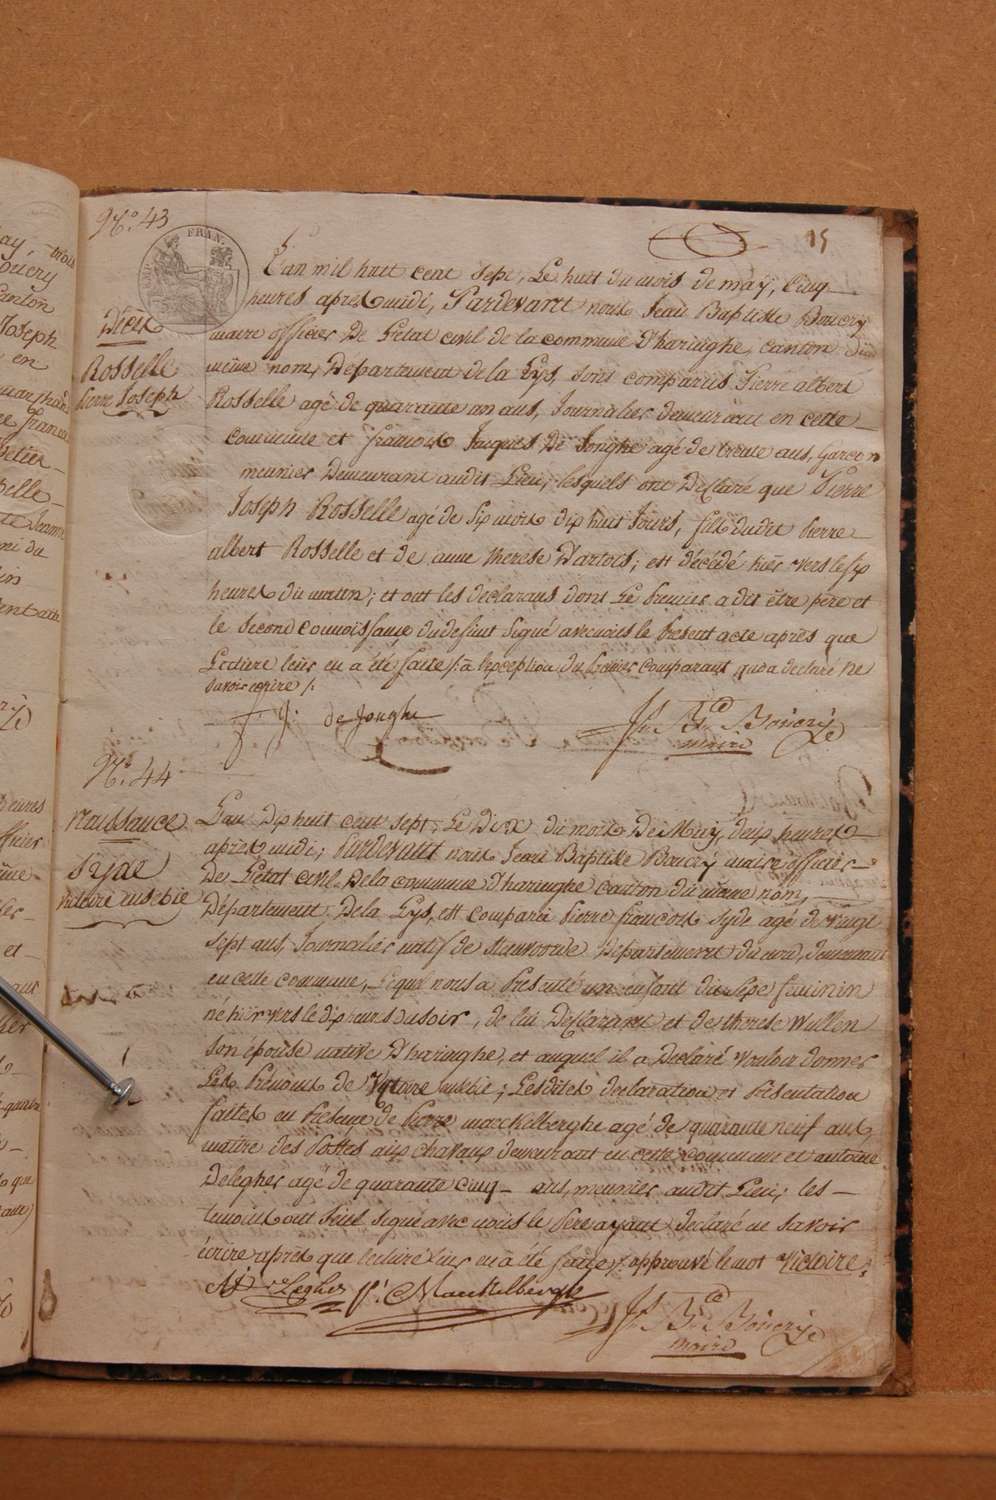 Nº. 43
15
FRAN.
L'an mil huit cent sept, Le huit du mois de maÿ, Cinq
heures après midi, Pardevant nous Jean Baptiste Boucry
maire officier De L'etat civil de la commune D'haringhe, canton du
même nom, Département de la Lÿs, sont comparus Pierre albert
Rosselle agé de quarante un ans, Journalier demeurant en cette
commune et françois Jacques De Jonghe agé de trente ans, Garcon
meunier Demeurant audit Lieu, lesquels ont Déclaré que Pierre
Joseph Rosselle agé de Six mois dix huit Jours, fils dudit Pierre
albert Rosselle et de anne therese D'artois; est décédé hiër vers le six
heures du matin; et ont les declarans dont Le Premier a dit être père et
le Second connoissance du defunt Signé avec nous le Present acte après que
Lecture leur en a été faite /: à l'exception du Premier comparant qui a declaré ne
Savoir ecrire /:
Décès
Rosselle
Pierre Joseph
f. J: de Jonghe
Jn. Bte. Boucrÿ
maire
Nº. 44
naissance
Syde
victoire eusebie
L'an Dix huit cent sept, Le Dix du mois De Maÿ, deux heures
après midi; Pardevant nous Jean Baptiste Boucry maire officier
De L'etat civil De la commune D'haringhe canton du même nom,
Département De la Lÿs, est comparu Pierre françois Syde agé de vingt
sept ans, Journalier natif de Staenvorde Département du nord, demeurant
en cette commune, Lequel nous a Presenté un enfant du Sexe feminin
né hiër vers le dix heures du soir, de lui Déclarant et de therese Wullen
son épouse native D'haringhe, et auquel il a Declaré vouloir donner
Les Prénoms de Victoire eusebie; Lesdites declaration et Présentation
faites en Présence de Pierre maeckelberghe agé de quarante neuf ans,
maitre des Postes aux chevaux demeurant en cette commune et antoine
Delegher agé de quarante cinq ans, meunier audit Lieu; les
temoins ont seuls signé avec nous le Pere ayant declaré ne savoir
écrire après que lecture leur en a été faite /: approuvé le mot Victoire :
Ae De Legher P: Maeckelberghe
Jn. Bte. Boucrÿ
maire